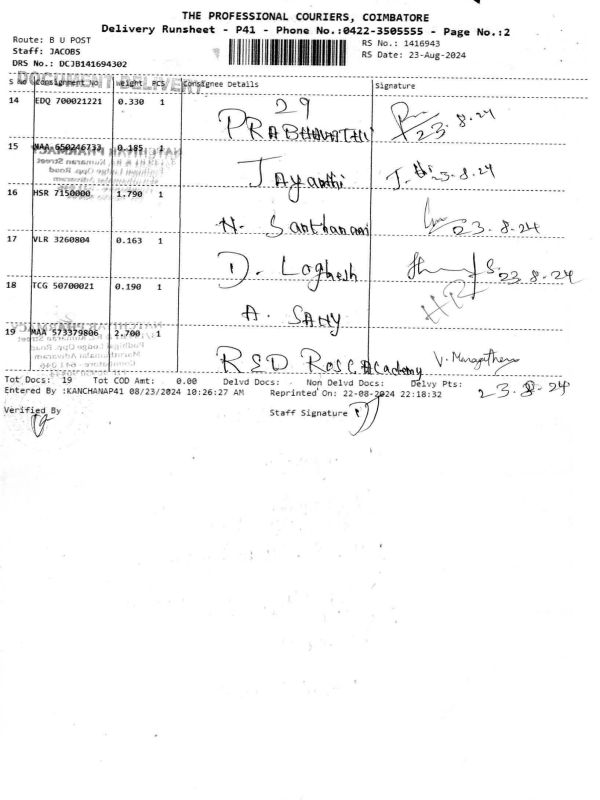 THE PROFESSIONAL COURIERS, COIMBATORE
Delivery Runsheet - P41 - Phone No.:0422-3505555 - Page No.:2
Route: B U POST
RS No.: 1416943
Staff: JACOBS
RS Date: 23-Aug-2024
DRS No.: DCJB141694302
S No Consignment No Weight PCS Consignee Details Signature
14 EDQ 700021221 0.330 1 29
PRABHAVATHI 23.8.24
15 MAA 650246733 0.185 1
Jayanthi 23.8.24
16 HSR 7150000 1.790 1
N. Santhanam 23.8.24
17 VLR 3260804 0.163 1
D. Loghesh 23.8.24
18 TCG 50700021 0.190 1
A. SANY
19 MAA 573379806 2.700 1
RSD Academy
Tot Docs: 19 Tot COD Amt: 0.00 Delvd Docs: Non Delvd Docs: Delvy Pts:
23.8.24
Entered By :KANCHANAP41 08/23/2024 10:26:27 AM Reprinted On: 22-08-2024 22:18:32
Verified By Staff Signature